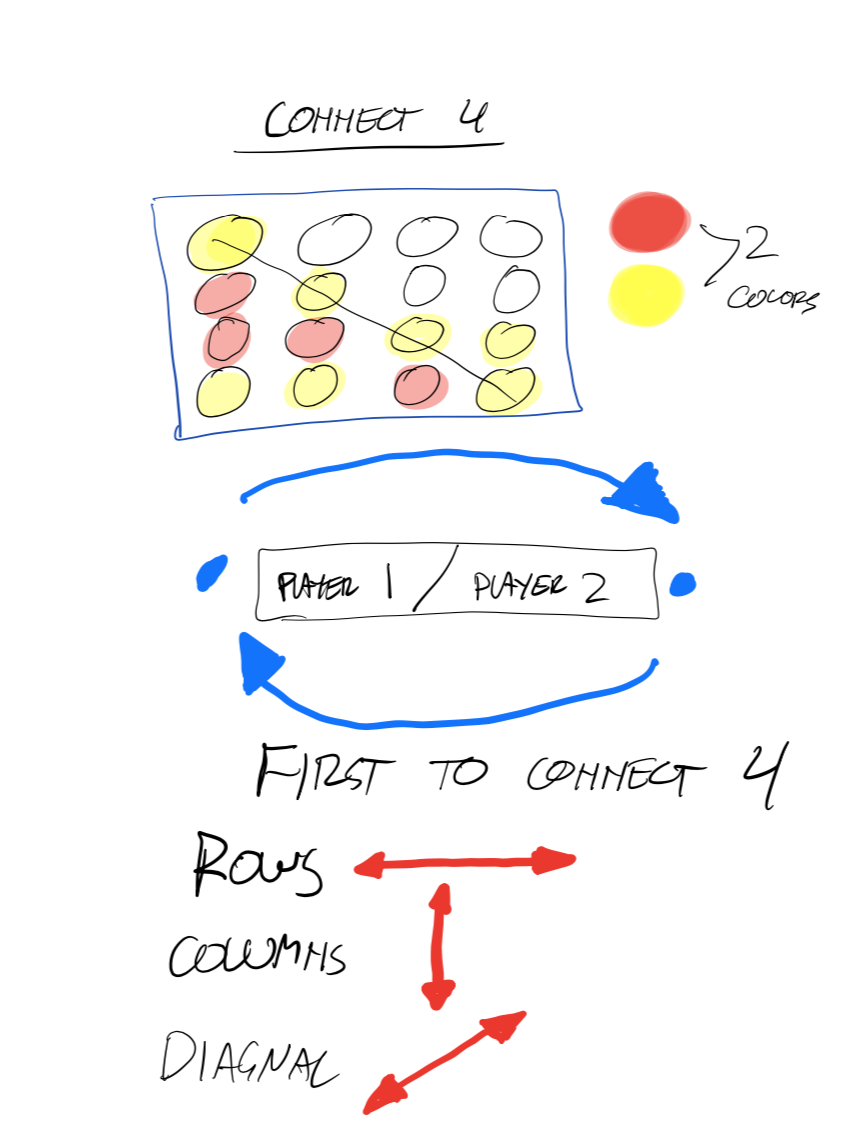 CONNECT 4
2
COLORS
PLAYER 1 / PLAYER 2
FIRST TO CONNECT 4
ROWS
COLUMNS
DIAGNAL